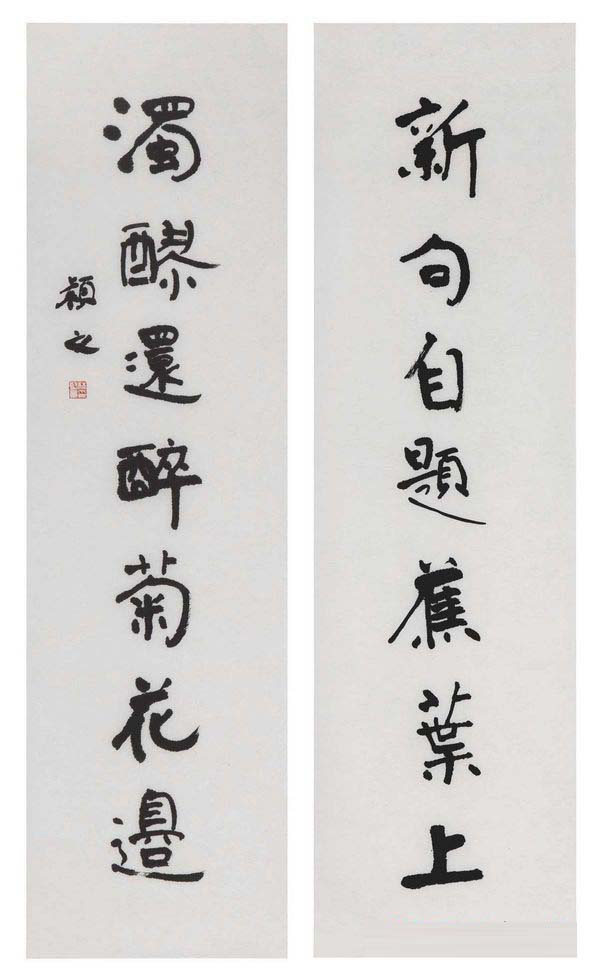 新句自題蕉葉上
濁醪還醉菊花邊
穎之